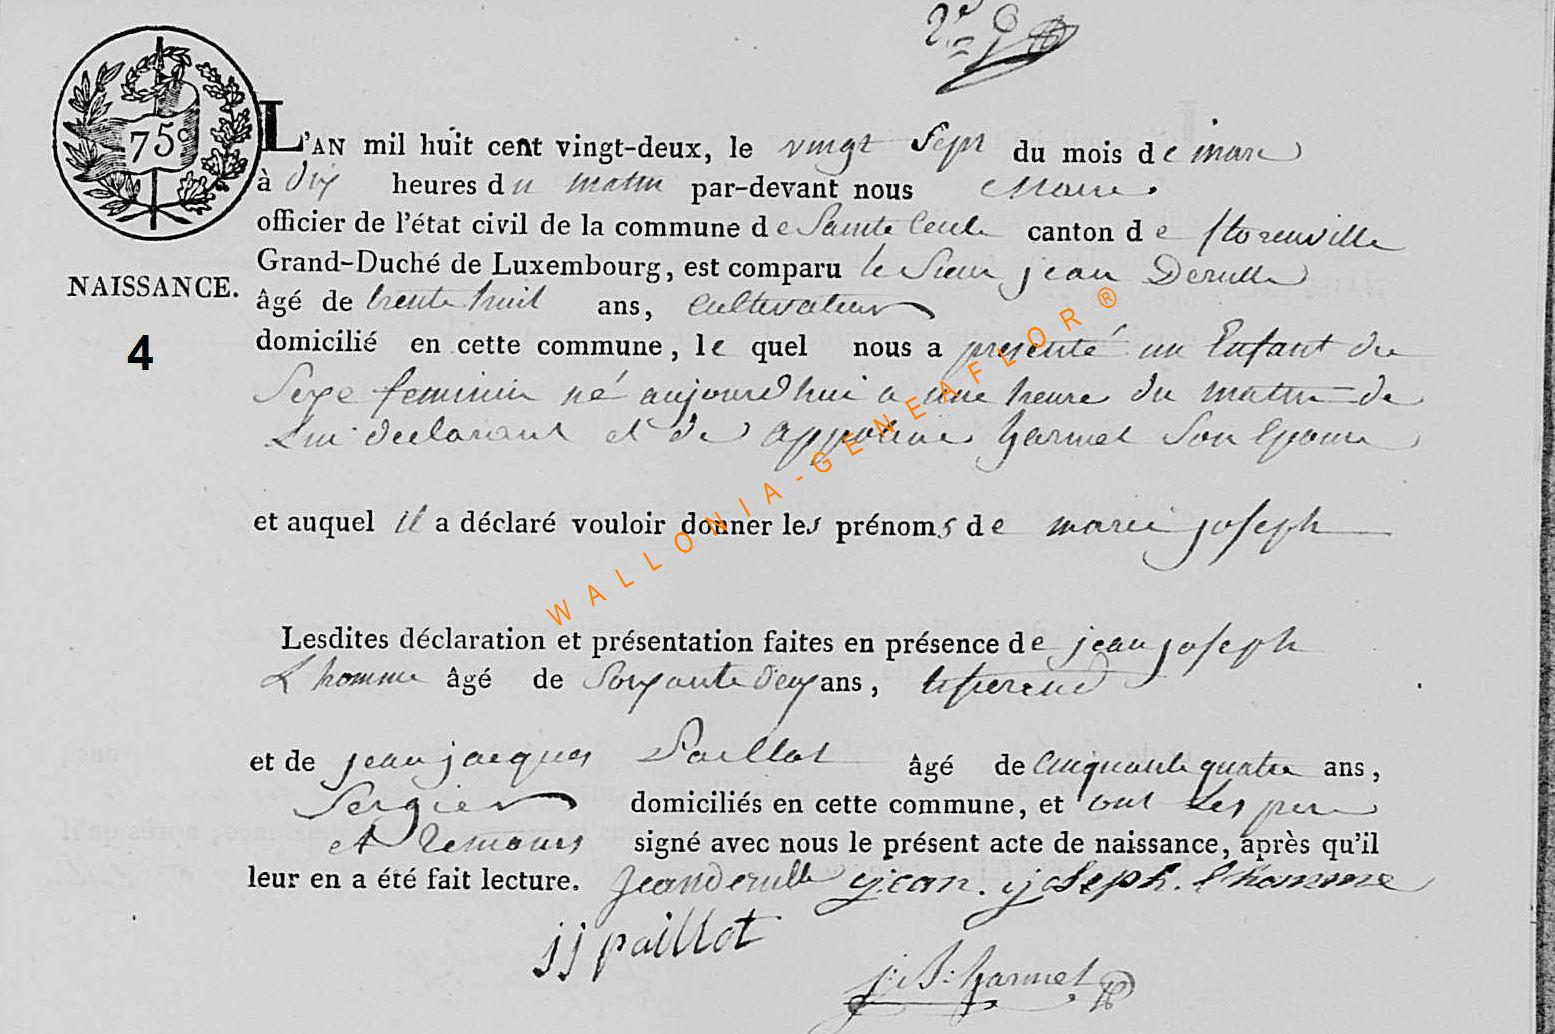 2e
75c
L'AN mil huit cent vingt-deux, le vingt Sept du mois de mars
à dix heures du matin par-devant nous Maire
officier de l'état civil de la commune de Sainte Cecile canton de florenville
Grand-Duché de Luxembourg, est comparu le Sieur jean Derulle
NAISSANCE.
âgé de trente huit ans, Cultivateur
4
domicilié en cette commune, le quel nous a presenté un Enfant du
Sexe feminin né aujourd'hui a une heure du matin de
Lui declarant et de appoline harmel Son Epouse
et auquel il a déclaré vouloir donner les prénoms de marie joseph
Lesdites déclaration et présentation faites en présence de jean joseph
L'homme âgé de Soixante deux ans,
et de jean jacques Paillot âgé de Cinquante quatre ans,
domiciliés en cette commune, et ont Les pere
et temoins signé avec nous le présent acte de naissance, après qu'il
leur en a été fait lecture. Jean Derulle jean. joseph. l'homme
jj paillot
j: B: harmel
WALLONIA-GENEAFLOR®